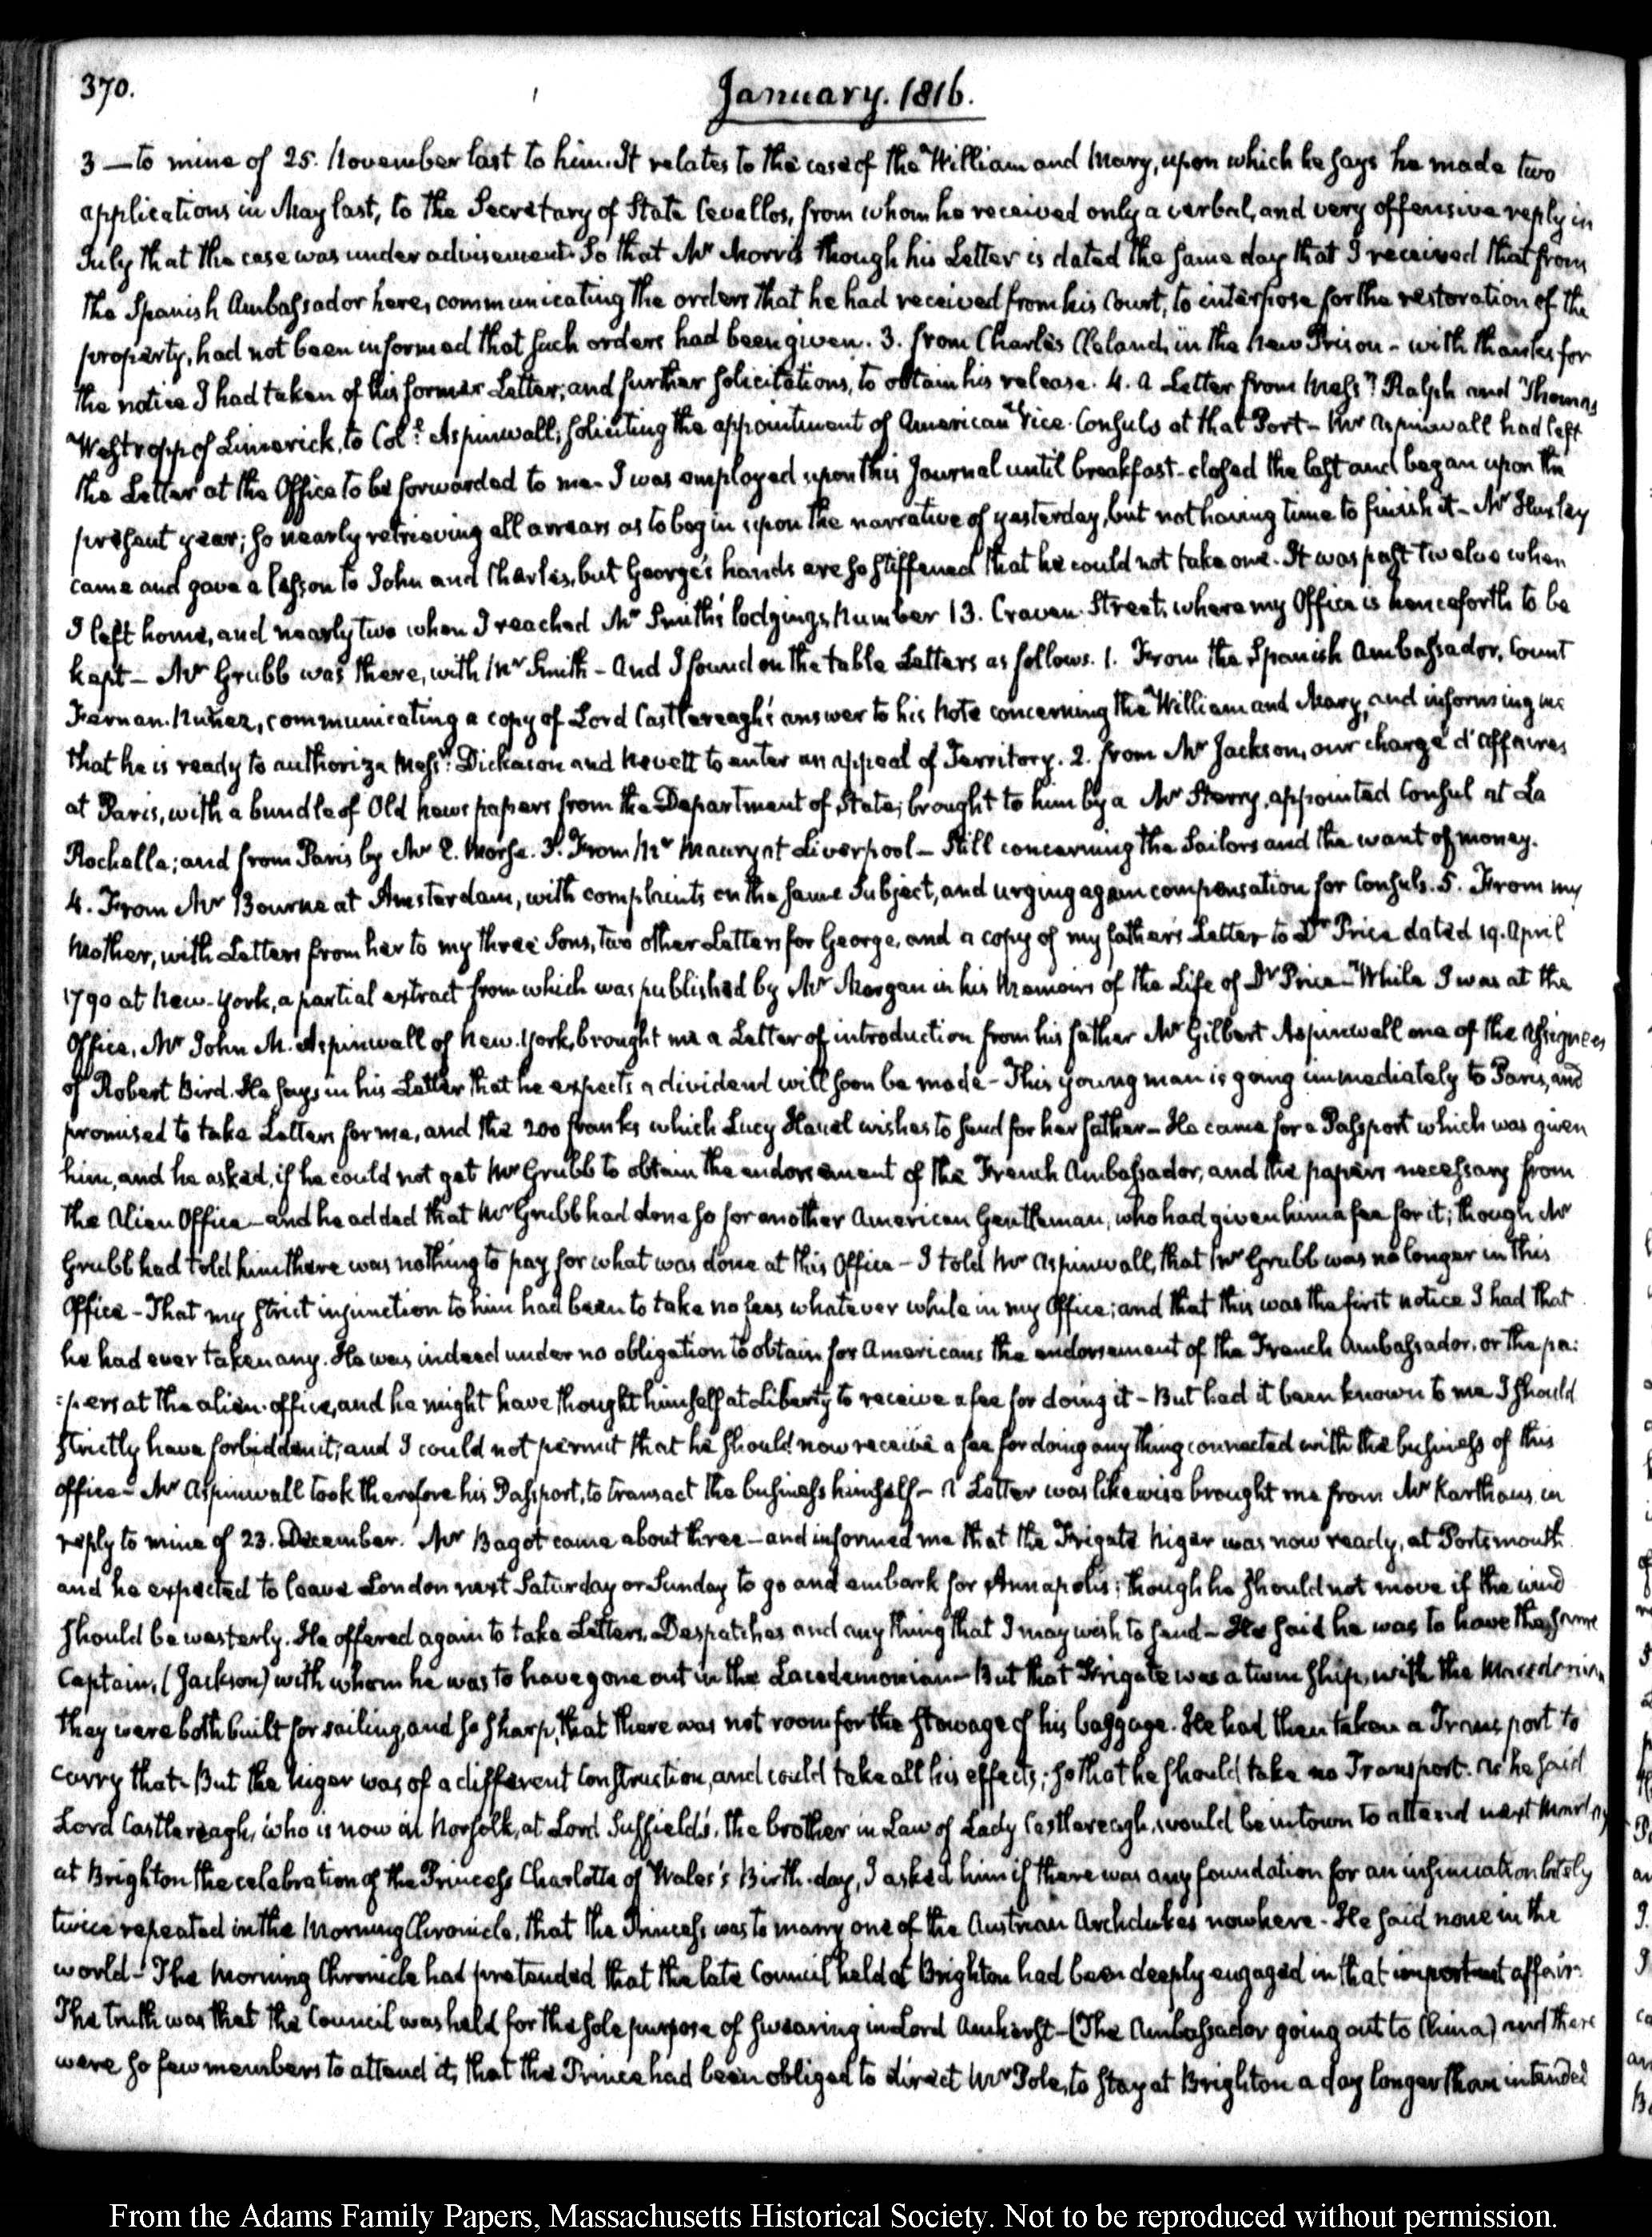 370.
January. 1816.
3 — to mine of 25. November last to him. It relates to the case of the William and Mary, upon which he says he made two
applications in May last, to the Secretary of State Cevallos, from whom he received only a verbal, and very offensive reply in
July that the case was under advisement. So that Mr Morris though his Letter is dated the same day that I received that from
the Spanish Ambassador here, communicating the orders that he had received from his Court, to interpose for the restoration of the
property, had not been informed that such orders had been given. 3. from Charles Cleland, in the New Prison – with thanks for
the notice I had taken of his former Letter, and further solicitations, to obtain his release. 4. A Letter from Messrs Ralph and Thomas
Westropp of Limerick, to Coll Aspinwall, soliciting the appointment of American Vice-Consuls at that Port – Mr Aspinwall had left
the Letter at the Office to be forwarded to me. I was employed upon this Journal until breakfast – closed the last and began upon the
present year; so nearly retrieving all arrears as to begin upon the narrative of yesterday, but not having time to finish it – Mr Huxley
came and gave a lesson to John and Charles, but George's hands are so stiffened that he could not take one. It was past twelve when
I left home, and nearly two when I reached Mr Smith's lodgings, Number 13. Craven Street, where my Office is henceforth to be
kept – Mr Grubb was there, with Mr Smith – And I found on the table Letters as follows. 1. From the Spanish Ambassador, Count
Fernan-Nuñez, communicating a copy of Lord Castlereagh's answer to his Note concerning the William and Mary, and informing me
that he is ready to authorize Messrs Dickason and Nevett to enter an appeal of Territory. 2. from Mr Jackson, our chargé d'affaires
at Paris, with a bundle of Old Newspapers from the Department of State; brought to him by a Mr Sterry, appointed Consul at La
Rochelle; and from Paris by Mr E. Morse. 3. From Mr Maury at Liverpool – Still concerning the Sailors and the want of money.
4. From Mr Bourne at Amsterdam, with complaints on the same subject, and urging again compensation for Consuls. 5. From my
Mother, with Letters from her to my three Sons, two other Letters for George, and a copy of my father's Letter to Dr Price dated 19. April
1790 at New-York, a partial extract from which was published by Mr Morgan in his Memoirs of the Life of Dr Price – While I was at the
Office, Mr John M. Aspinwall of New-York, brought me a Letter of introduction from his father Mr Gilbert Aspinwall one of the Assignees
of Robert Bird. He says in his Letter that he expects a dividend will soon be made – This young man is going immediately to Paris, and
promised to take Letters for me, and the 200 franks which Lucy Hanel wishes to send for her father – He came for a Passport which was given
him, and he asked, if he could not get Mr Grubb to obtain the endorsement of the French Ambassador, and the papers necessary from
the Alien Office – and he added that Mr Grubb had done so for another American Gentleman, who had given him a fee for it; though Mr
Grubb had told him there was nothing to pay for what was done at this Office – I told Mr Aspinwall, that Mr Grubb was no longer in this
Office – That my strict injunction to him had been to take no fees whatever while in my Office; and that this was the first notice I had that
he had ever taken any. He was indeed under no obligation to obtain for Americans the endorsement of the French Ambassador, or the pa:
:pers at the alien-office, and he might have thought himself at liberty to receive a fee for doing it – But had it been known to me I should
strictly have forbidden it; and I could not permit that he should now receive a fee for doing any thing connected with the business of this
office – Mr Aspinwall took therefore his Passport, to transact the business himself – A Letter was likewise brought me from Mr Karthaus, in
reply to mine of 23. December. Mr Bagot came about three – and informed me that the Frigate Niger was now ready, at Portsmouth
and he expected to leave London next Saturday or Sunday to go and embark for Annapolis; though he should not move if the wind
should be westerly. He offered again to take Letters, Despatches and any thing that I may wish to send – He said he was to have the same
Captain, (Jackson) with whom he was to have gone out in the Lacedemonian – But that Frigate was a twin ship, with the Macedonian
they were both built for sailing, and so sharp, that there was not room for the stowage of his baggage. He had then taken a Transport to
carry that – But the Niger was of a different Construction, and could take all his effects; so that he should take no Transport. As he said
Lord Castlereagh, who is now in Norfolk, at Lord Suffield's, the brother in Law of Lady Castlereagh, would be in town to attend next Monday
at Brighton the celebration of the Princess Charlotte of Wales's Birth-day, I asked him if there was any foundation for an insinuation lately
twice repeated in the Morning Chronicle, that the Princess was to marry one of the Austrian Archdukes now here – He said none in the
world – The Morning Chronicle had pretended that the late Council held at Brighton had been deeply engaged in that important affair.
The truth was that the Council was held for the sole purpose of swearing in Lord Amherst – (The Ambassador going out to China) and there
were so few members to attend it, that the Prince had been obliged to direct Mr Pole, to stay at Brighton a day longer than intended
From the Adams Family Papers, Massachusetts Historical Society. Not to be reproduced without permission.